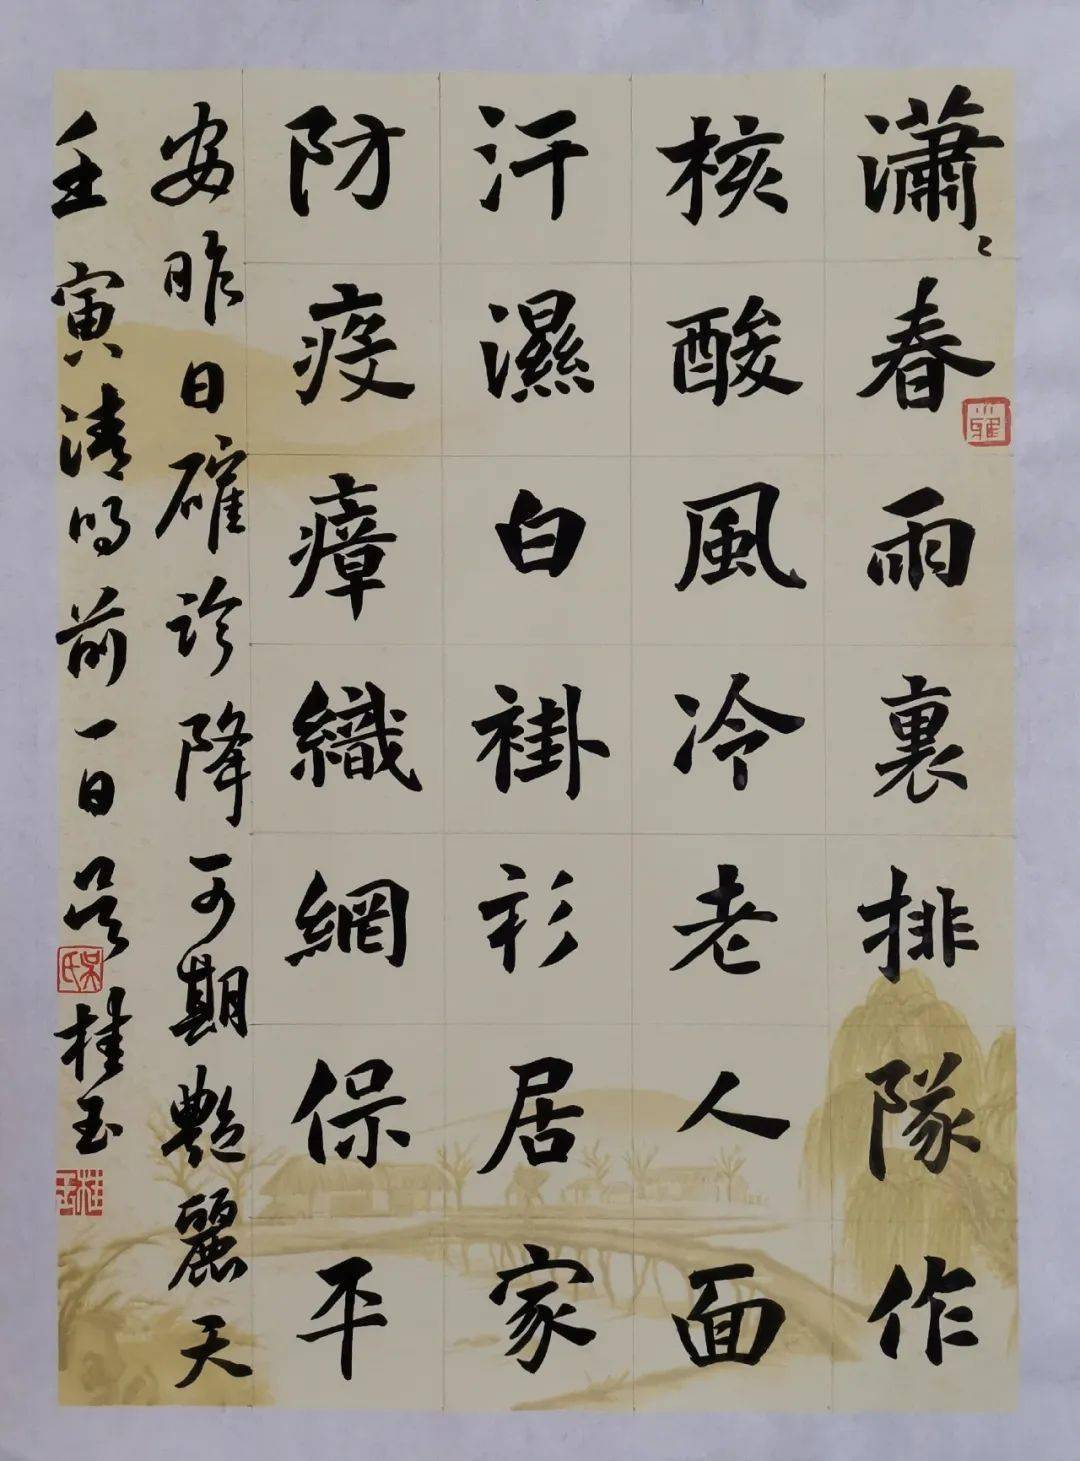 瀟〻春雨裏排隊作
核酸風冷老人面
汗濕白褂衫居家
防疫瘴織網保平
安昨日確診降可期艷麗天
壬寅清明前一日吳桂玉
吳氏